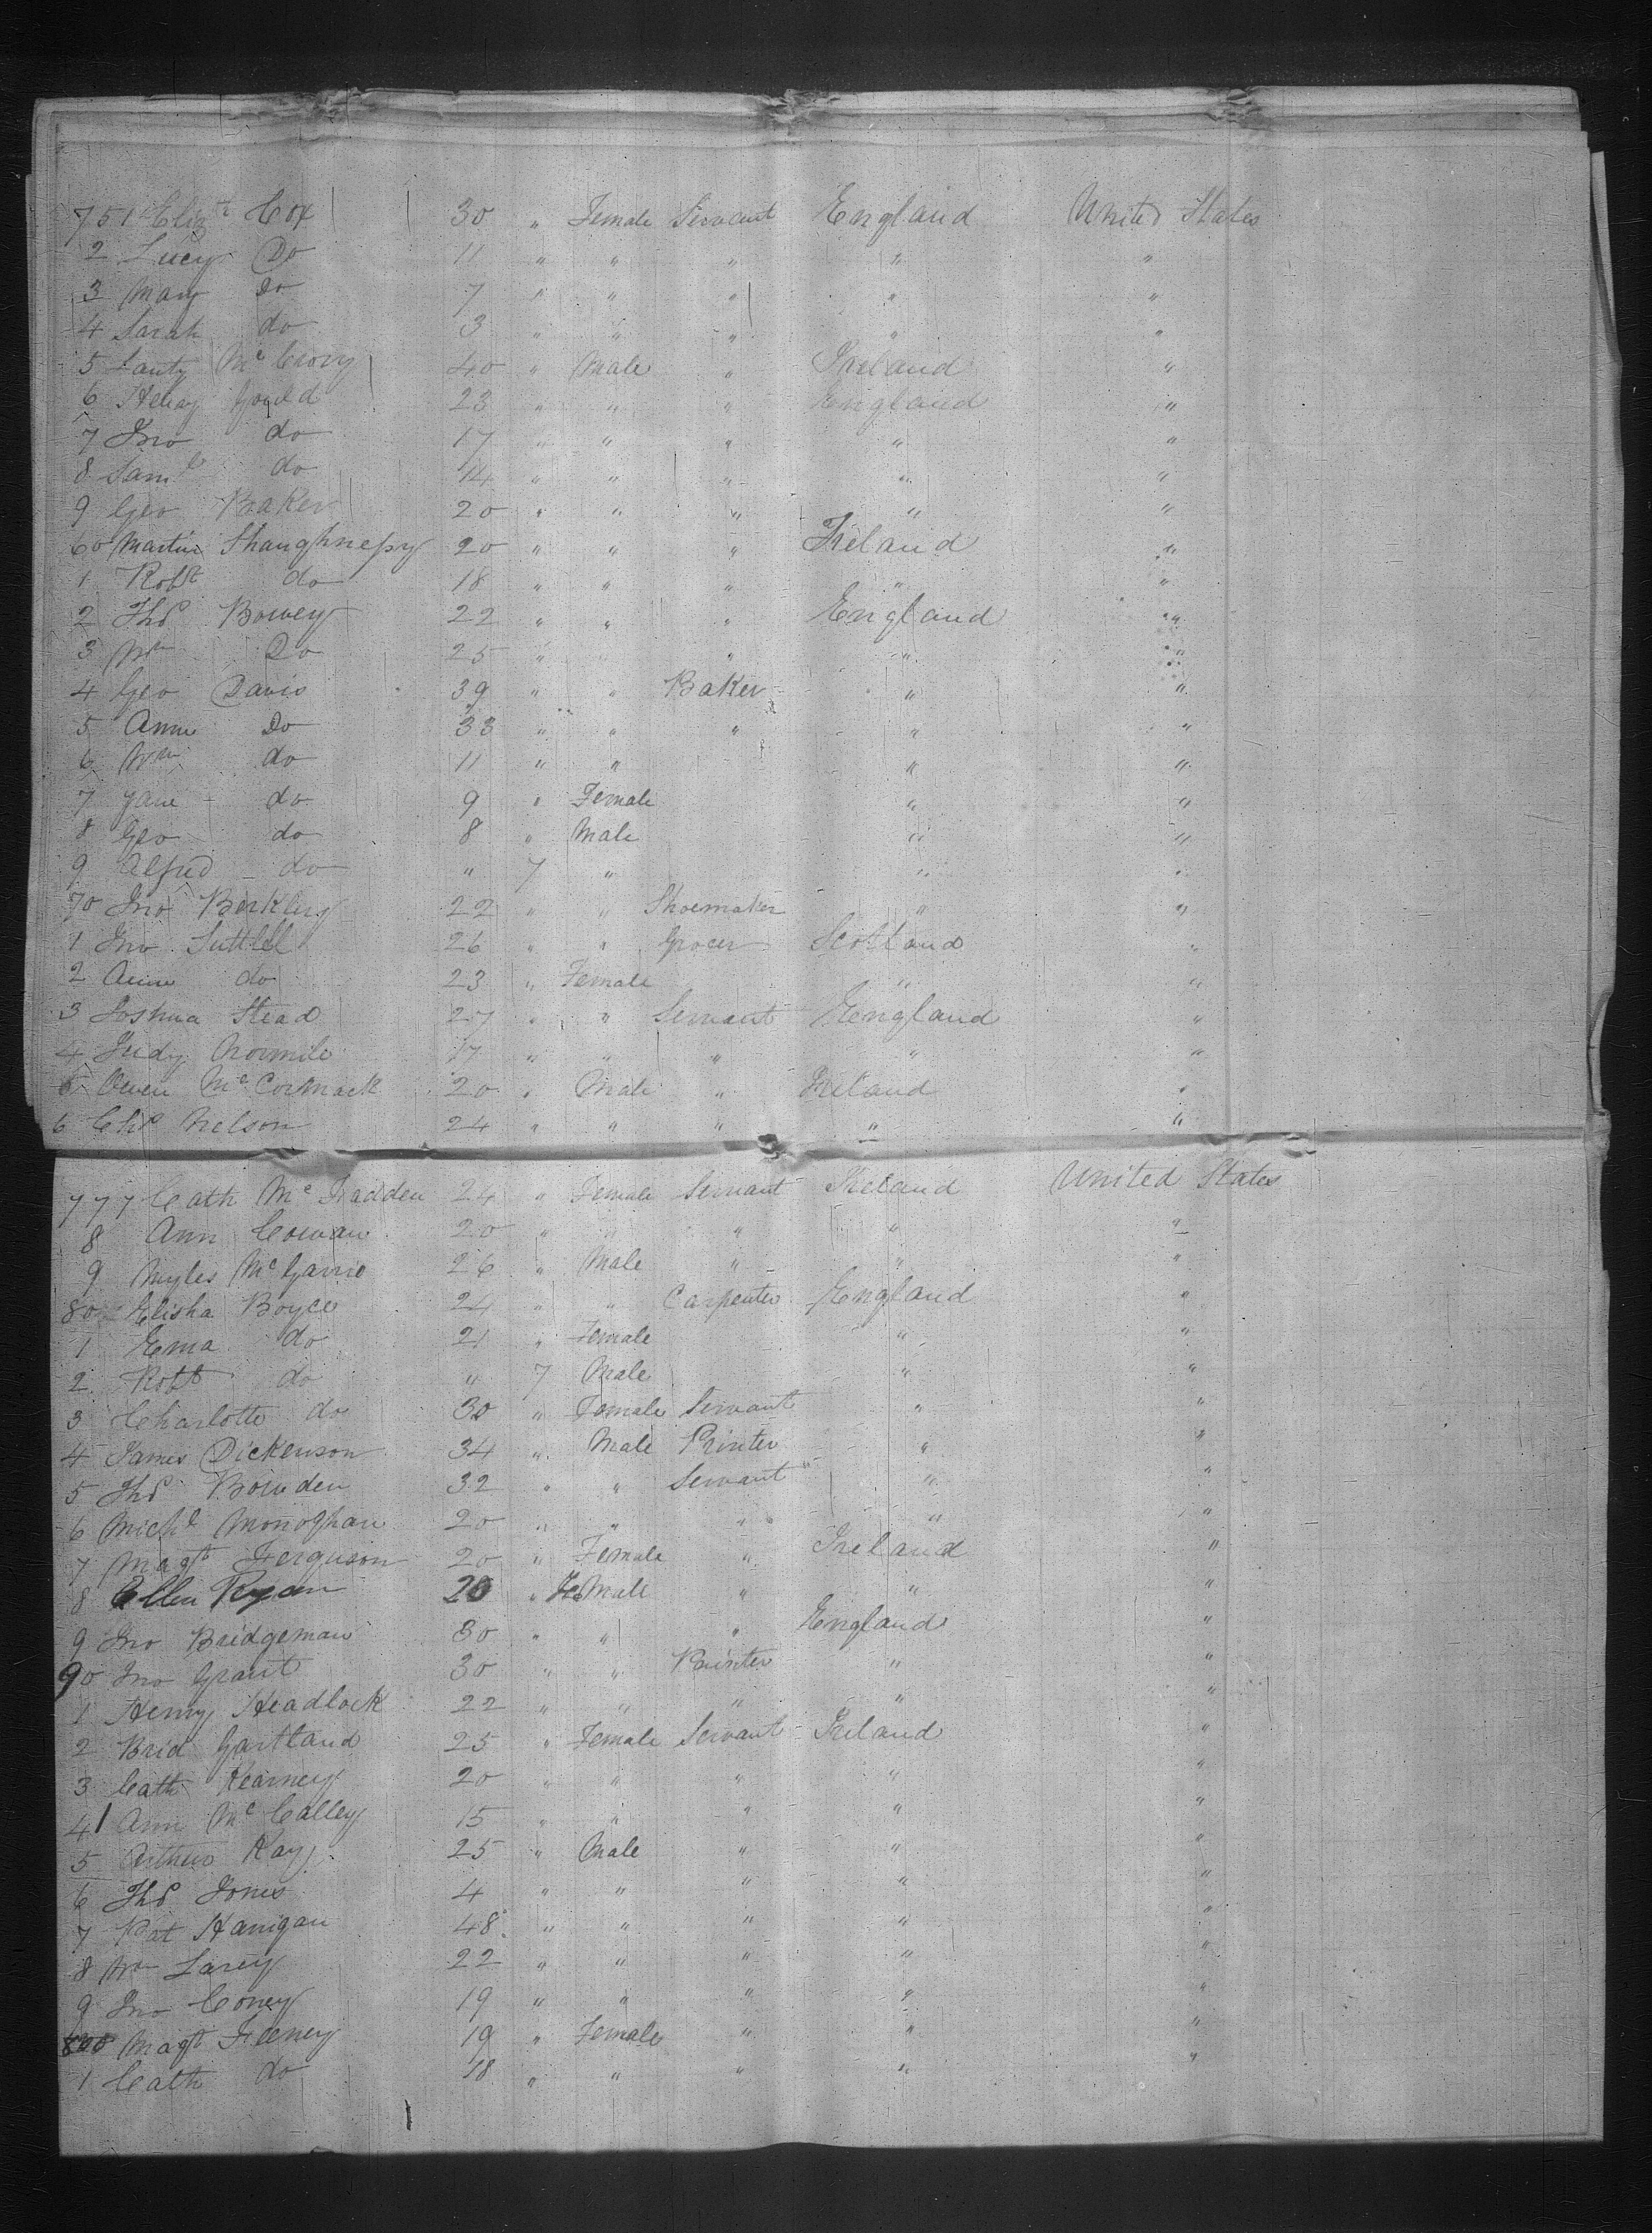 751 Eliz.th Cox 30 " Female Servant England United States
2 Lucy Do 11 " " " " "
3 Mary Do 7 " " " " "
4 Sarah do 3 " " " " "
5 Lanty Mc Crory 40 " Male " Ireland "
6 Henry Gould 23 " " " England "
7 Jno do 17 " " " " "
8 Saml do 14 " " " " "
9 Geo Baker 20 " " " " "
60 Martin Shaughnessy 20 " " " Ireland "
1 Robt do 18 " " " " "
2 Ths Bowey 22 " " " England "
3 Wm Do 25 " " " " "
4 Geo Davis 39 " " Baker " "
5 Ann Do 33 " " " " "
6 Wm do 11 " " " "
7 Jane do 9 " Female " "
8 Geo do 8 " Male " "
9 Alfred do " 7 " " "
70 Jno Berkley 22 " " Shoemaker " "
1 Jno Suttle 26 " " Grocer Scotland "
2 Anne do 23 " Female " "
3 Joshua Stead 27 " " Servant England "
4 Judy Normile 17 " " " " "
5 Owen Mc Cormack 20 " Male " Ireland "
6 Chs Nelson 24 " " " " "
777 Cath Mc Fadden 24 " Female Servant Ireland United States
8 Ann Cowan 20 " " " " "
9 Myles Mc Garrie 26 " Male " " "
80 Elisha Boyce 24 " " Carpenter England "
1 Ema do 21 " Female " "
2 Robt do " 7 Male " "
3 Charlotte do 30 " Female Servant " "
4 James Dickenson 34 " Male Printer " "
5 Ths Bowden 32 " " Servant " "
6 Michl Monoghan 20 " " " " "
7 Magt Ferguson 20 " Female " Ireland "
8 Ellen Ryan 20 " FeMale " " "
9 Jno Bridgeman 30 " " " England "
90 Jno Grant 30 " " Painter " "
1 Henry Headlock 22 " " " " "
2 Brid Gartland 25 " Female Servant Ireland "
3 Cath Kearney 20 " " " " "
4 Ann Mc Calley 15 " " " " "
5 Arthur Kay 25 " Male " " "
6 Ths Jones 4 " " " " "
7 Pat Hanigan 48 " " " " "
8 Wm Larey 22 " " " " "
9 Jno Coney 19 " " " " "
800 Magt Feeney 19 " Female " " "
1 Cath do 18 " " " " "